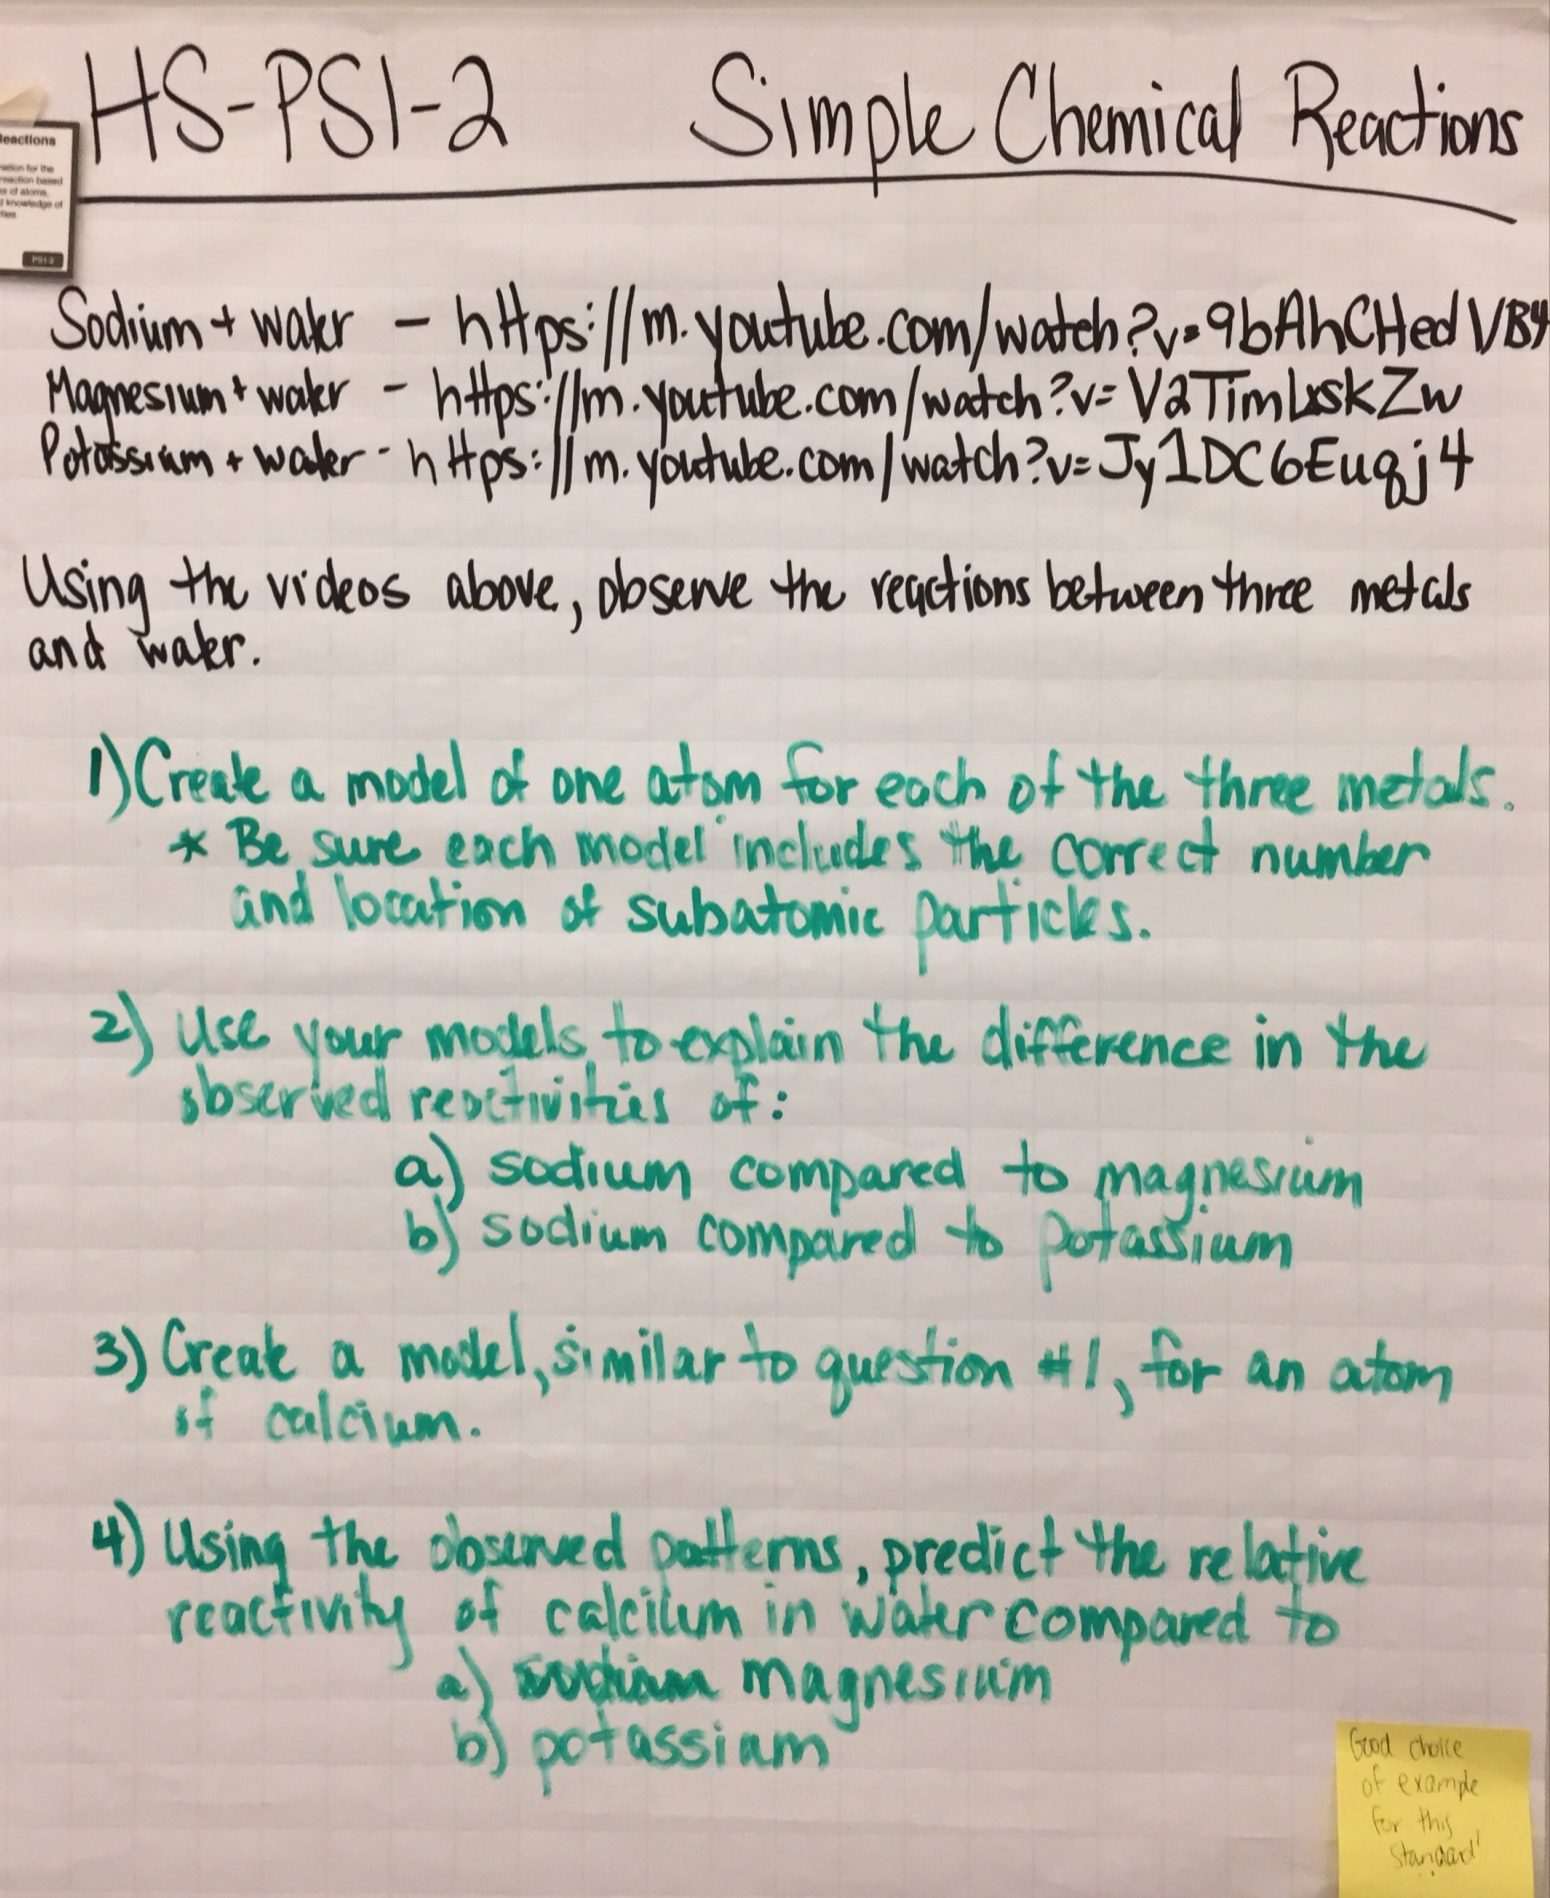 HS-PS1-2 Simple Chemical Reactions
Reactions
reaction based
of atoms,
knowledge of
PS1-2
Sodium + water – https://m.youtube.com/watch?v=9bAhCHedVB4
Magnesium + water – https://m.youtube.com/watch?v=V2TimLxskZw
Potassium + water - https://m.youtube.com/watch?v=Jy1DC6Euqj4
Using the videos above, observe the reactions between three metals
and water.
1) Create a model of one atom for each of the three metals.
* Be sure each model includes the correct number
and location of subatomic particles.
2) Use your models to explain the difference in the
observed reactivities of:
a) sodium compared to magnesium
b) sodium compared to potassium
3) Create a model, similar to question #1, for an atom
of calcium.
4) Using the observed patterns, predict the relative
reactivity of calcium in water compared to
a) magnesium
b) potassium
Good choice
of example
for this
standard!